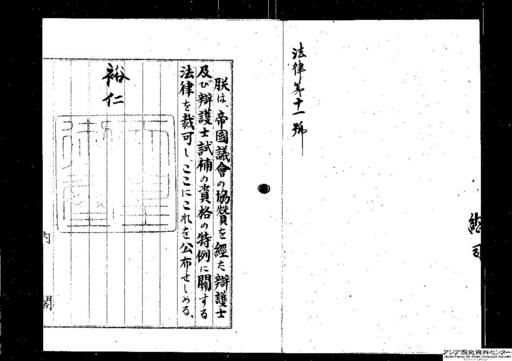 法律第十一號
朕は、帝國議會の協賛を經た辯護士
及び辯護士試補の資格の特例に關する
法律を裁可し、ここにこれを公布せしめる。
裕仁
内閣
アジア歴史資料センター